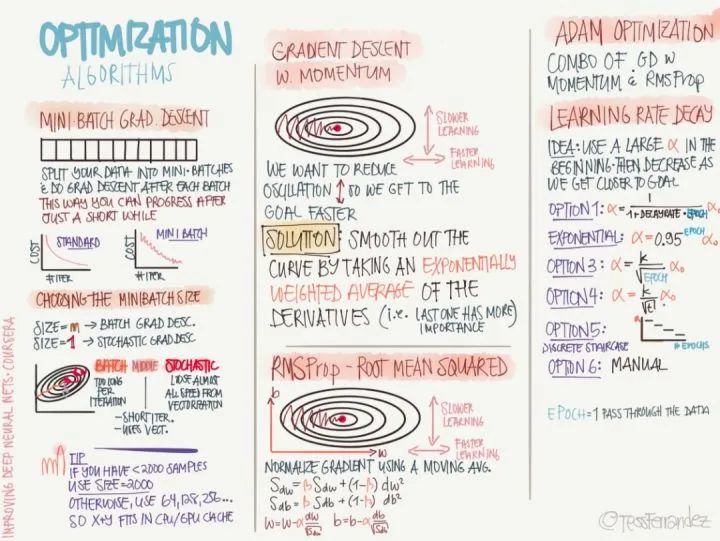 OPTIMIZATION
ALGORITHMS
MINI-BATCH GRAD. DESCENT
SPLIT YOUR DATA INTO MINI-BATCHES
& DO GRAD DESCENT AFTER EACH BATCH
THIS WAY YOU CAN PROGRESS AFTER
JUST A SHORT WHILE
COST
STANDARD
# ITER
COST
MINI BATCH
# ITER
CHOOSING THE MINIBATCH SIZE
SIZE=m → BATCH GRAD DESC.
SIZE=1 → STOCHASTIC GRAD DESC
BATCH MIDDLE STOCHASTIC
TOO LONG
PER
ITERATION
LOSE ALMOST
ALL SPEED FROM
VECTORIZATION
-SHORT ITER.
-USES VECT.
TIP
IF YOU HAVE <2000 SAMPLES
USE SIZE=2000
OTHERWISE, USE 64, 128, 256...
SO X+Y FITS IN CPU/GPU CACHE
IMPROVING DEEP NEURAL NETS · COURSERA
GRADIENT DESCENT
W. MOMENTUM
SLOWER
LEARNING
FASTER
LEARNING
WE WANT TO REDUCE
OSCILLATION ↕ SO WE GET TO THE
GOAL FASTER
SOLUTION: SMOOTH OUT THE
CURVE BY TAKING AN EXPONENTIALLY
WEIGHTED AVERAGE OF THE
DERIVATIVES (i.e. LAST ONE HAS MORE
IMPORTANCE)
RMSProp - ROOT MEAN SQUARED
b
w
SLOWER
LEARNING
FASTER
LEARNING
NORMALIZE GRADIENT USING A MOVING AVG.
Sdw = β Sdw + (1-β) dw²
Sdb = β Sdb + (1-β) db²
w = w-α dw/√Sdw b = b-α db/√Sdb
ADAM OPTIMIZATION
COMBO OF GD W
MOMENTUM & RMSProp
LEARNING RATE DECAY
IDEA: USE A LARGE α IN THE
BEGINNING. THEN DECREASE AS
WE GET CLOSER TO GOAL
OPTION 1: α = 1/(1 + DECAYRATE · EPOCH) α₀
EXPONENTIAL: α = 0.95^EPOCH α₀
OPTION 3: α = k/√EPOCH α₀
OPTION 4: α = k/√t α₀
OPTION 5:
DISCRETE STAIRCASE
α
# EPOCHS
OPTION 6: MANUAL
EPOCH = 1 PASS THROUGH THE DATA
@TessFerrandez